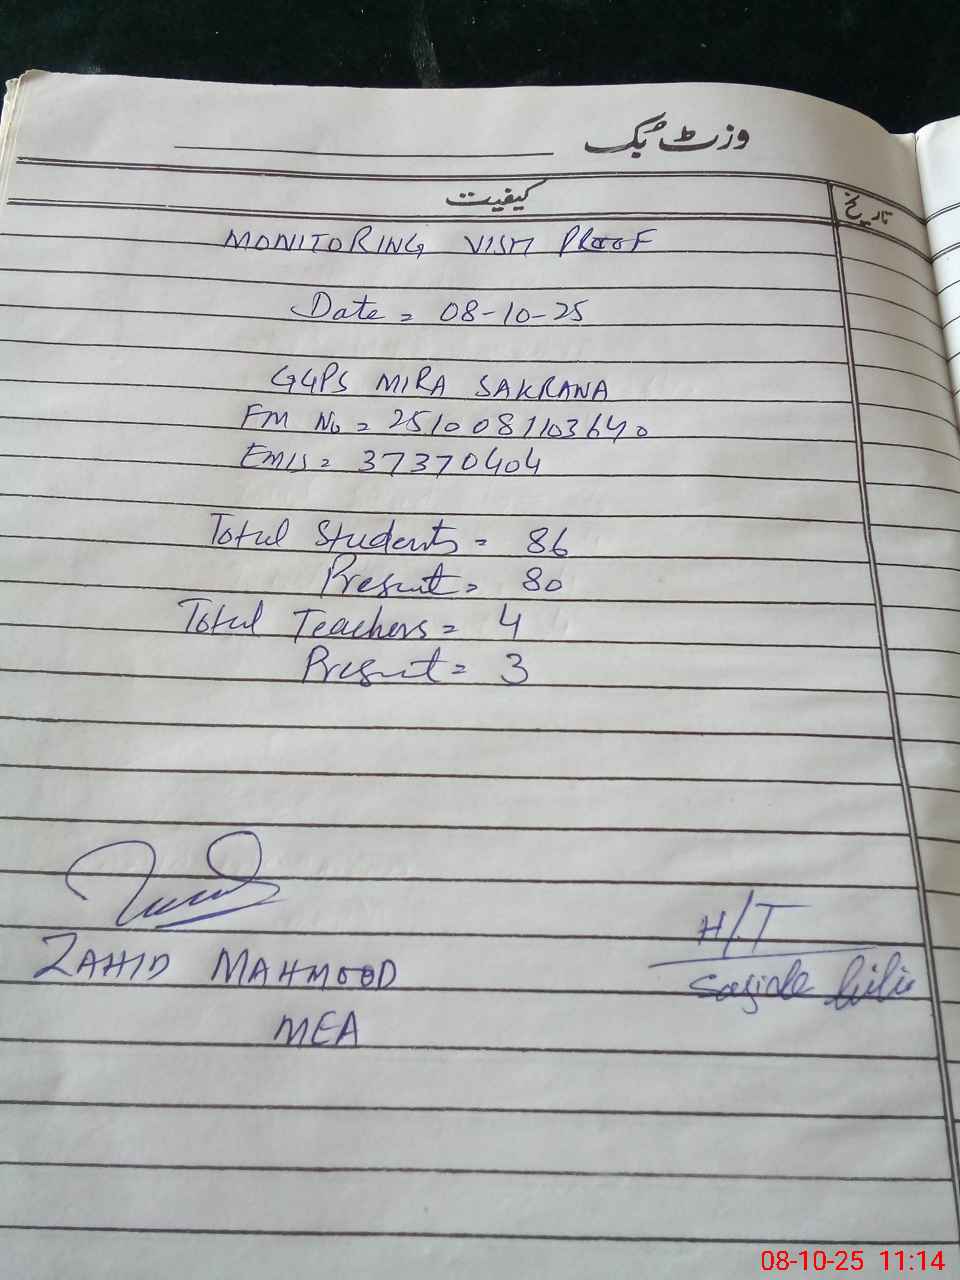 وزٹ بُک
کیفیت
تاریخ
MONITORING VISIT PROOF
Date = 08-10-25
GGPS MIRA SAKRANA
FM No = 2510081103640
EMIS = 37370404
Total Students = 86
Present = 80
Total Teachers = 4
Present = 3
ZAHID MAHMOOD
MEA
H/T
Sajida bibi
08-10-25 11:14